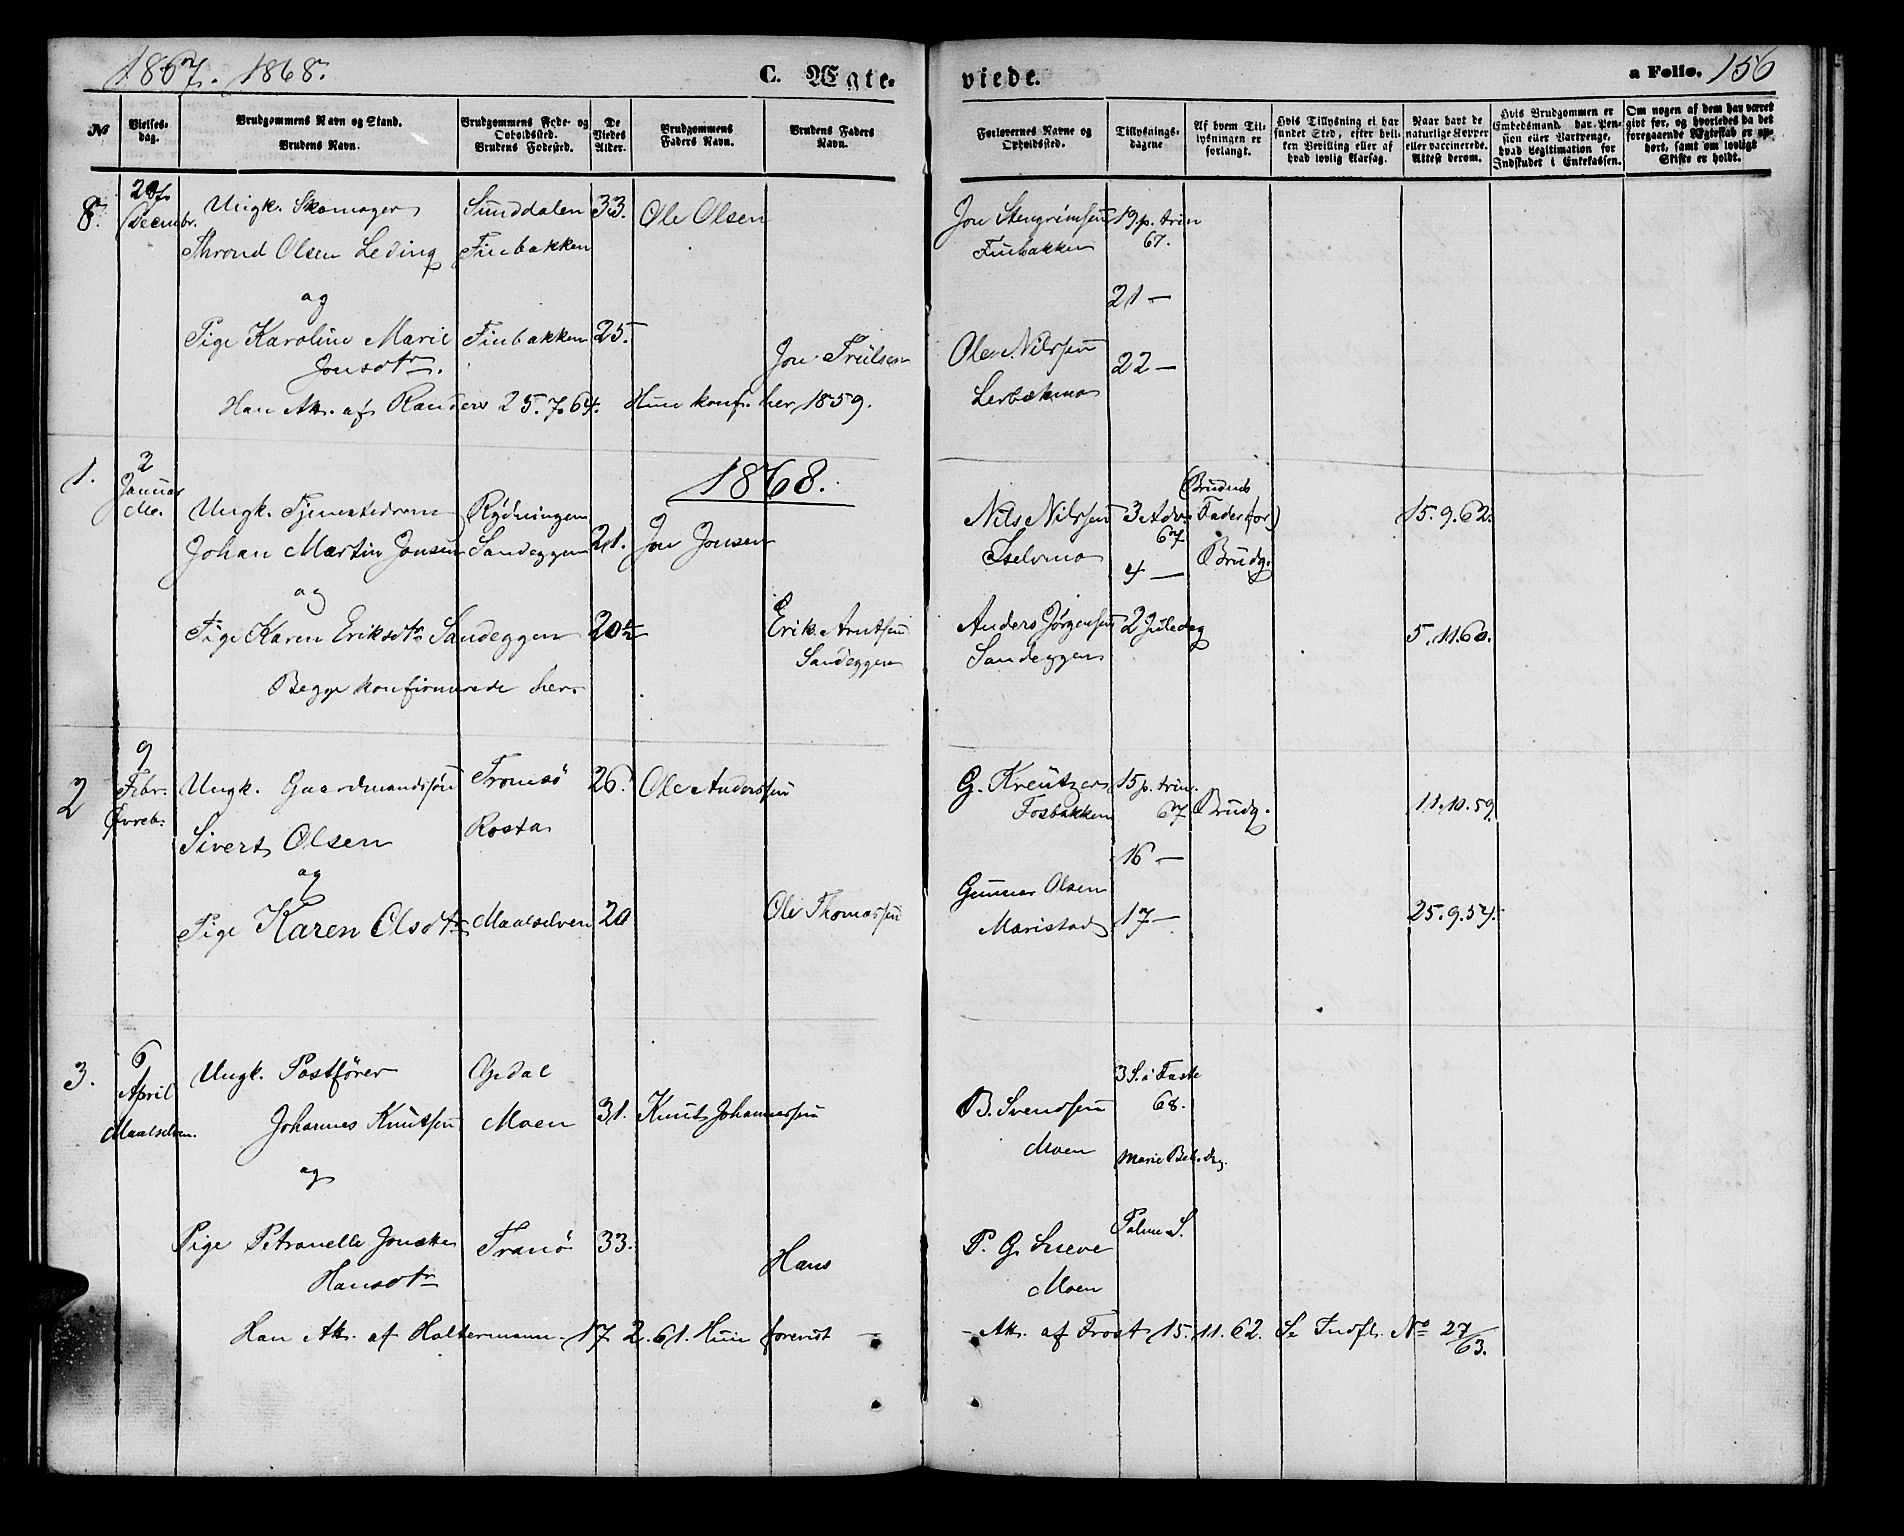 1867. 1868.
C. Ægte-
viede.
a Folio. 156
No
Vielses-
dag.
Brudgommens Navn og Stand.
Brudens Navn.
Brudgommens Føde- og
Opholdssted.
Brudens Fødested.
De
Viedes
Alder.
Brudgommens
Faders Navn.
Brudens Faders
Navn.
Forlovernes Navne og
Opholdssted.
Tillysnings-
dagene
Af hvem Til-
lysningen er
forlangt.
Hvis Tillysning ei har
fundet Sted, efter hvil-
ken Bevilling eller af
hvad lovlig Aarsag.
Naar havt de
naturlige Kopper
eller vaccinerede.
Attest derom.
Hvis Brudgommen er
Embedsmand, har Pen-
sion eller Vartpenge,
hvad Legitimation for
Indskudet i Enkekassen.
Om nogen af dem har været
gift før, og hvorledes da det
foregaaende Ægteskab er op-
hørt, samt om lovligt
Skifte er holdt.
8.
Decembr.
Ungk. Skomager
Sunddalen
33.
Ole Olsen
Jon Stengrimsen
19 p. trin
67.
Thrond Olsen Leding
Finbakken
Finbakken
og
21 —
Pige Karoline Marie
Jonsdtr.
Finbakken
25.
Jon
Ole Nilssen
22 —
Lerbækmo
Han Att. af Randers 25.7.64. Hun konf. her 1859.
1868.
1.
2
Januar
Mo.
Ungk. Tjenestedreng
Rydningen
Nils Nilssen
3 Adv.
67
Brudens
Fader for
Brudg.
15.9.62.
Johan Martin Jonsen
Sandeggen
21.
Jon Jonsen
Iselvmo
4 —
og
Pige Karen Eriksdtr
Sandeggen
20 ½
Erik Arntsen
Sandeggen
Anders Jørgensen
2 Juledag
5.11.60.
Sandeggen
Begge konfirmerede her
2
9
Febr.
Øvreb.
Ungk. Gaardmandssøn
Tromsø
26.
Ole Anderssen
G. Kreutzer
Fosbakken
15 p. trin.
67
Brudg.
11.10.59.
Sivert Olsen
Rosta
16 —
og
Gunnar Olsen
Pige Karen Olsdtr
Maalselven
20
Ole Thomassen
Maristad
17 —
25.9.54.
3.
6
April
Maalselven.
Ungk. Postfører
Opdal
3 S. i Faste
68.
Johannes Knutsen
Moen
31.
Knut Johannessen
B. Svendsen
Moen
Marie Beb. dag.
og
Palme S.
Pige Petronelle
Hansdtr
Tranø
33.
Hans
P. G.
Moen
Han Att. af Holtermann 17 2.61. Hun forevist —
- Att. af Frost 15.11.62. Se Indfl. No 27/63.